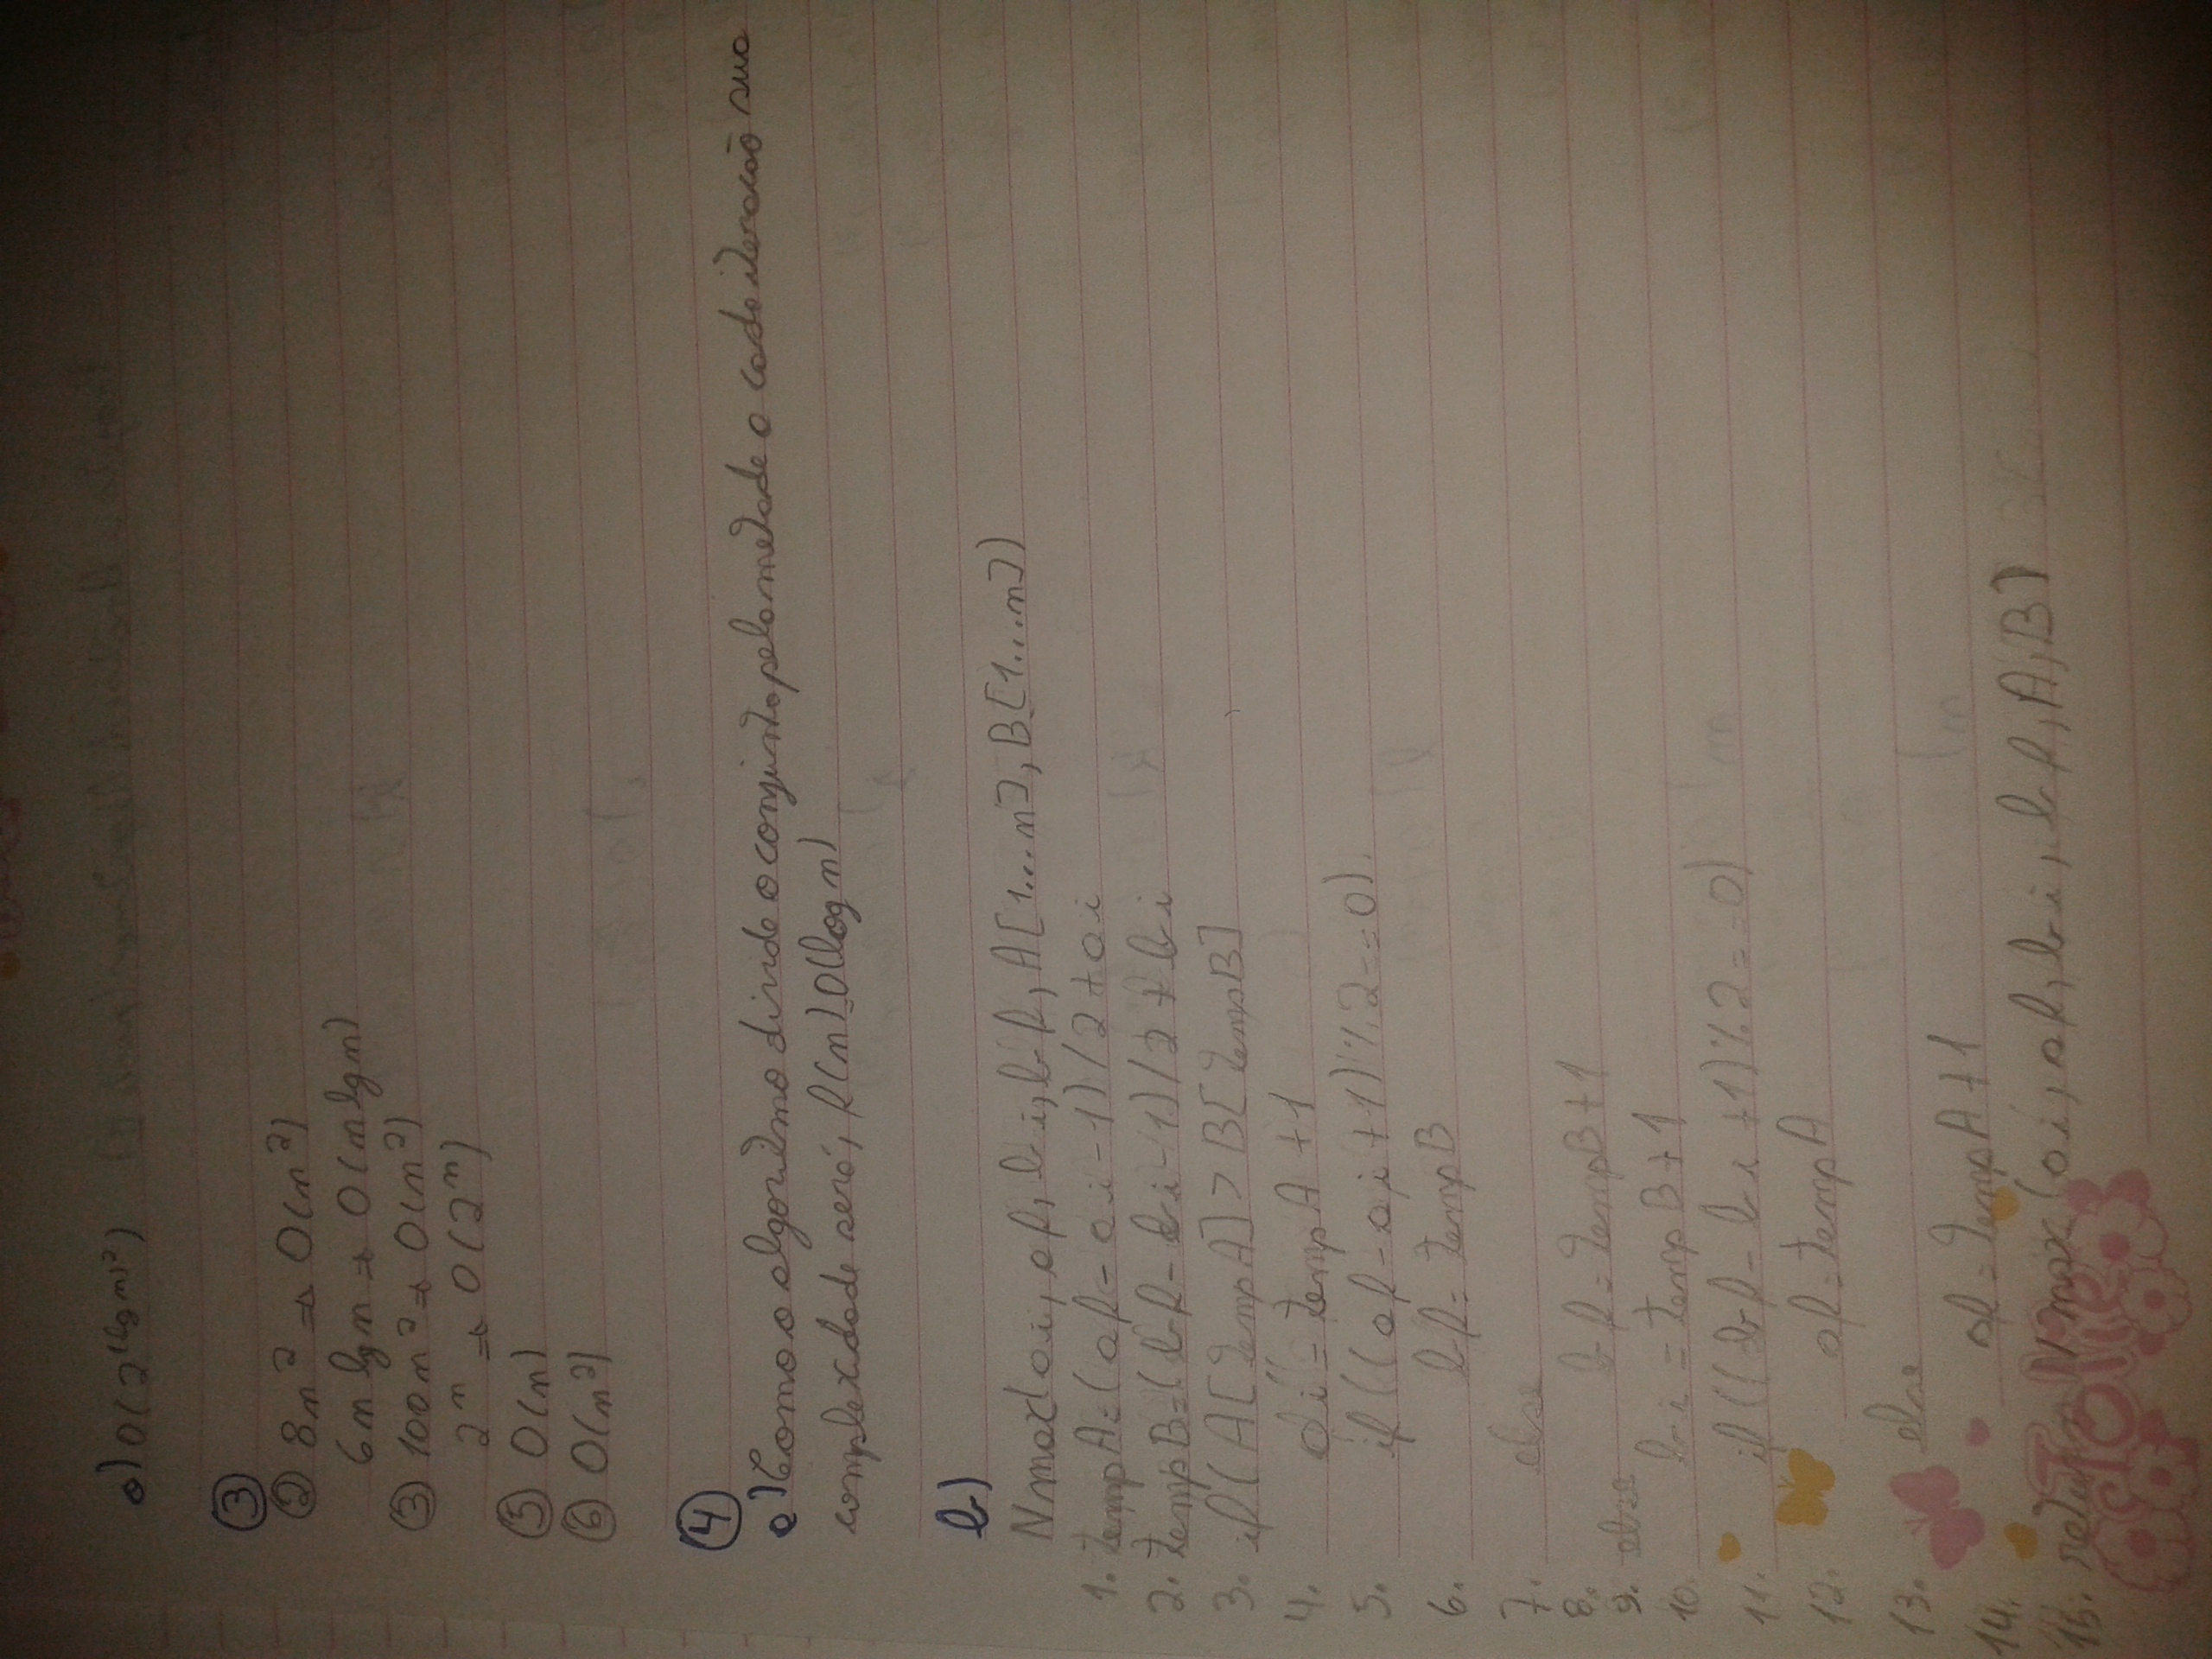 o) O(2^(lg n)^2)
3
2 8n^2 ⇒ O(n^2)
6n lg n ⇒ O(n lg n)
3 100n^2 ⇒ O(n^2)
2^n ⇒ O(2^n)
5 O(n)
6 O(n^2)
4
a) Como o algoritmo divide o conjunto pela metade a cada iteração sua
complexidade será, f(n)=O(log n)
b)
Nmax(ai, af, bi, bf, A[1...n], B[1...n])
1. tempA=(af-ai-1)/2+ai
2. tempB=(bf-bi-1)/2+bi
3. if(A[tempA]>B[tempB]
4. ai=tempA+1
5. if((af-ai+1)%2==0)
6. bf=tempB
7. else
8. bf=tempB+1
9. else
10. bi=tempB+1
11. if((bf-bi+1)%2==0)
12. af=tempA
13. else
14. af=tempA+1
15. return Nmax(ai, af, bi, bf, A, B)
Jolie